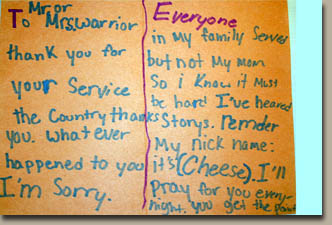 To Mr. or
Mrs. warrior
thank you for
your Service
the Country thanks
you. what ever
happened to you
I'm Sorry.
Everyone
in my family Served
but not My Mom
So i know it Must
be hard I've heared
Storys. remder
My nick name:
it's (Cheese). I'll
pray for you every-
night. you get the point